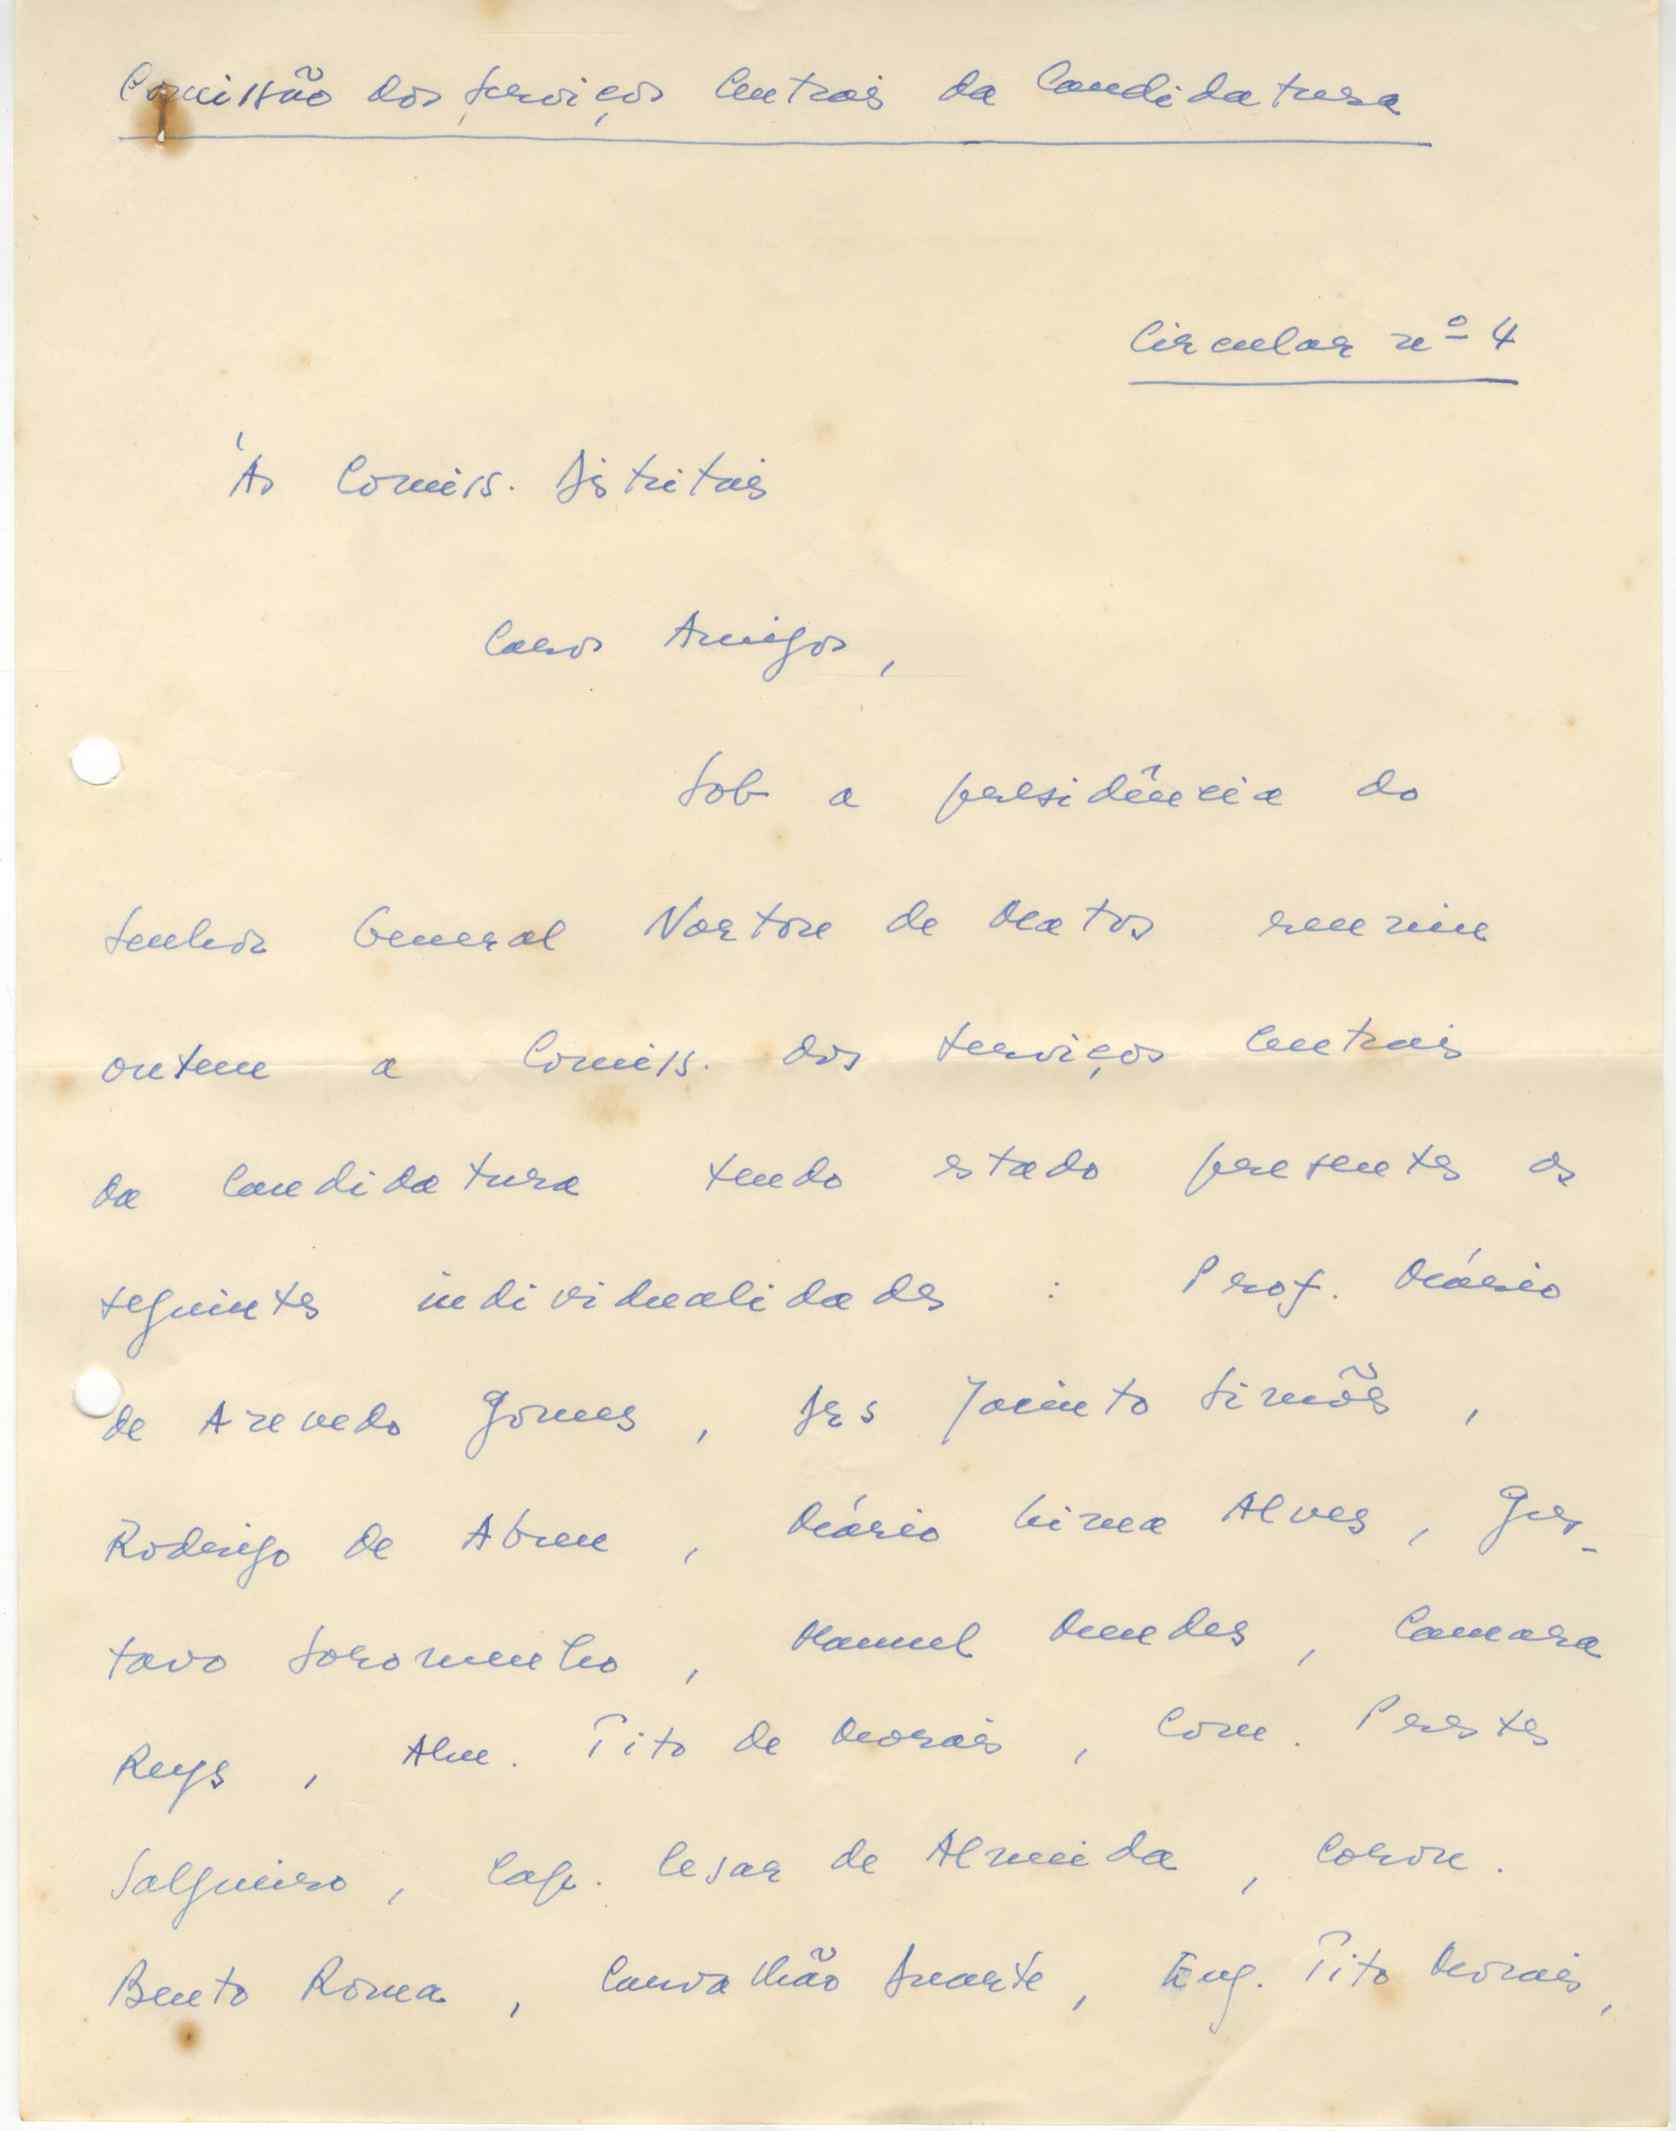 Comissão dos Serviços Centrais da Candidatura
Circular nº 4
Às Comiss. Distritais
Caros Amigos,
Sob a presidência do
Senhor General Norton de Matos reuniu
ontem a Comiss. dos Serviços Centrais
da Candidatura tendo estado presentes as
seguintes individualidades : Prof. Mário
de Azevedo Gomes, Drs Jacinto Simões,
Rodrigo de Abreu, Mário Lima Alves, Gus-
tavo Soromenho, Manuel Mendes, Camara
Reys, Alm. Tito de Morais, Com. Prestes
Salgueiro, Cap. Cesar de Almeida, Coron.
Bento Roma, Carvalhão Duarte, Eng. Tito Morais,